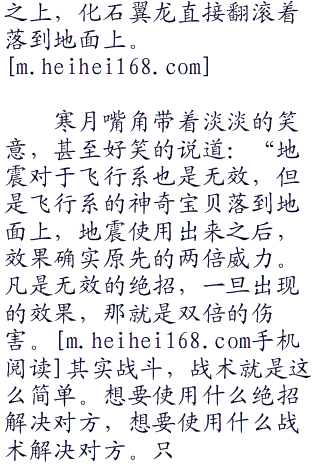 之上，化石翼龙直接翻滚着
落到地面上。
[m.heihei168.com]
寒月嘴角带着淡淡的笑
意，甚至好笑的说道：“地
震对于飞行系也是无效，但
是飞行系的神奇宝贝落到地
面上，地震使用出来之后，
效果确实原先的两倍威力。
凡是无效的绝招，一旦出现
的效果，那就是双倍的伤
害。[m.heihei168.com手机
阅读]其实战斗，战术就是这
么简单。想要使用什么绝招
解决对方，想要使用什么战
术解决对方。只